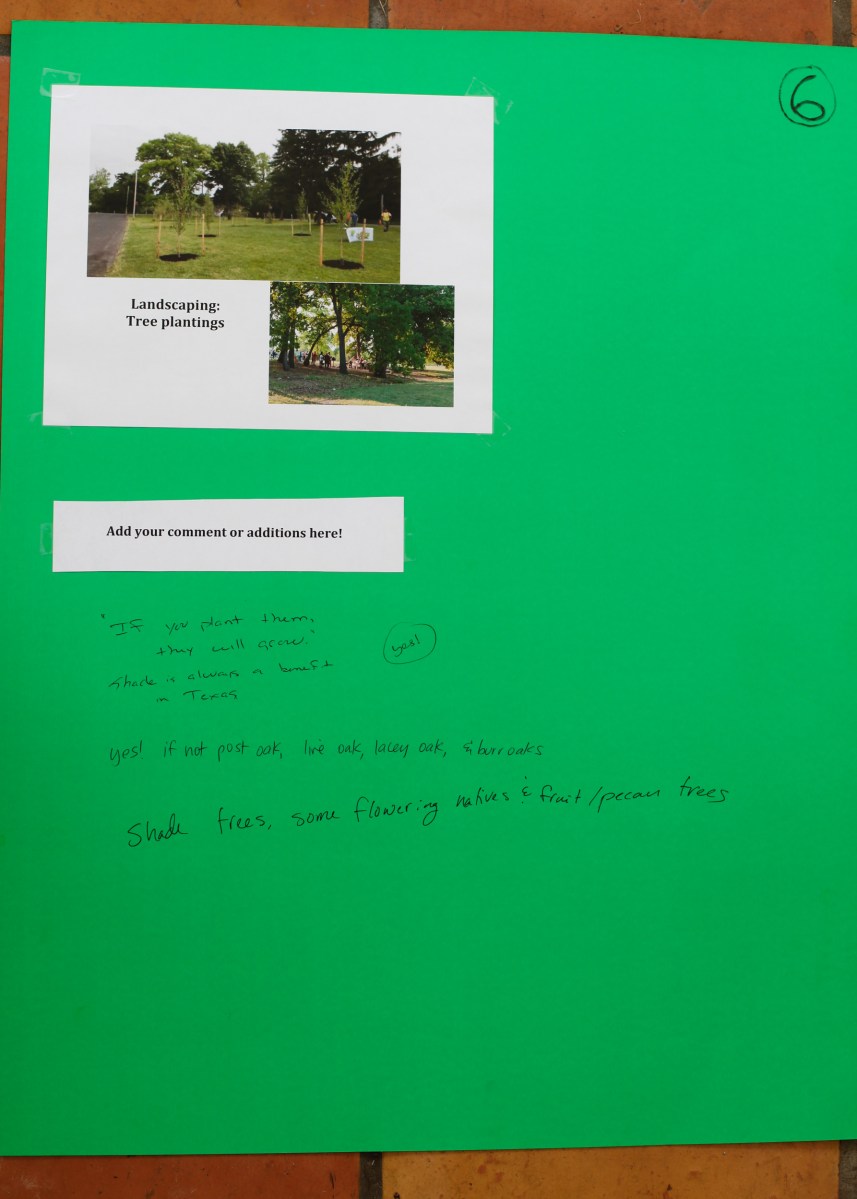 6
Landscaping:
Tree plantings
Add your comment or additions here!
"If you plant them,
they will grow."
yes!
Shade is always a benefit
in Texas
yes! if not post oak, live oak, lacey oak, & burr oaks
Shade trees, some flowering natives & fruit/pecan trees